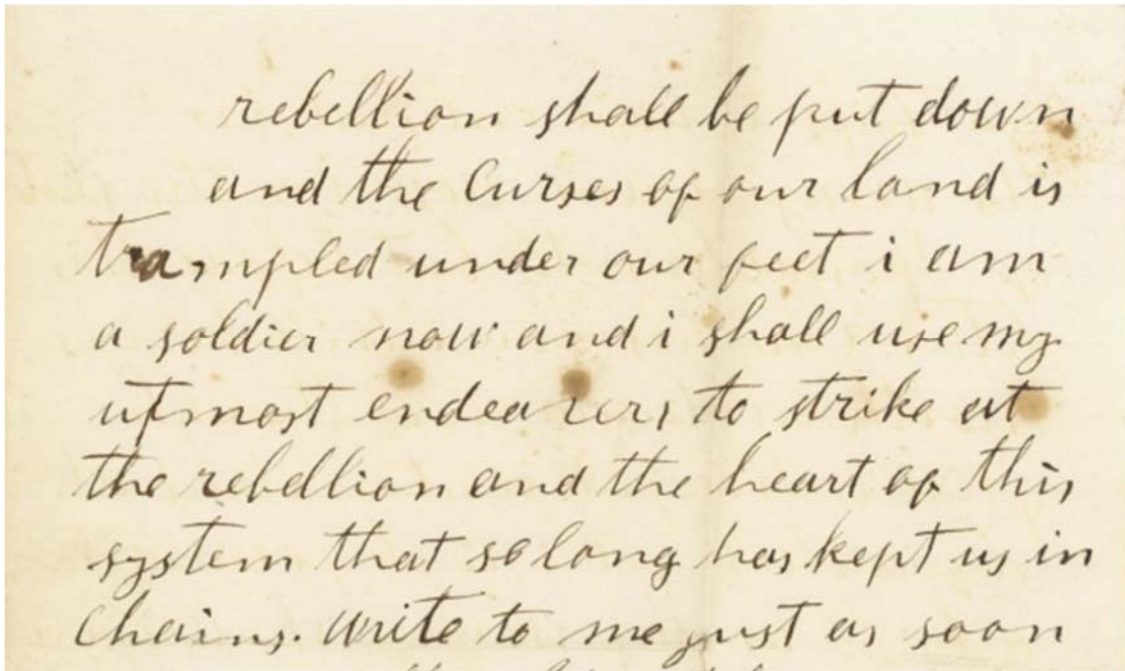 rebellion shall be put down
and the Curses of our land is
trampled under our feet i am
a soldier now and i shall use my
utmost endeavers to strike at
the rebellion and the heart of this
system that so long has kept us in
Chains. write to me just as soon